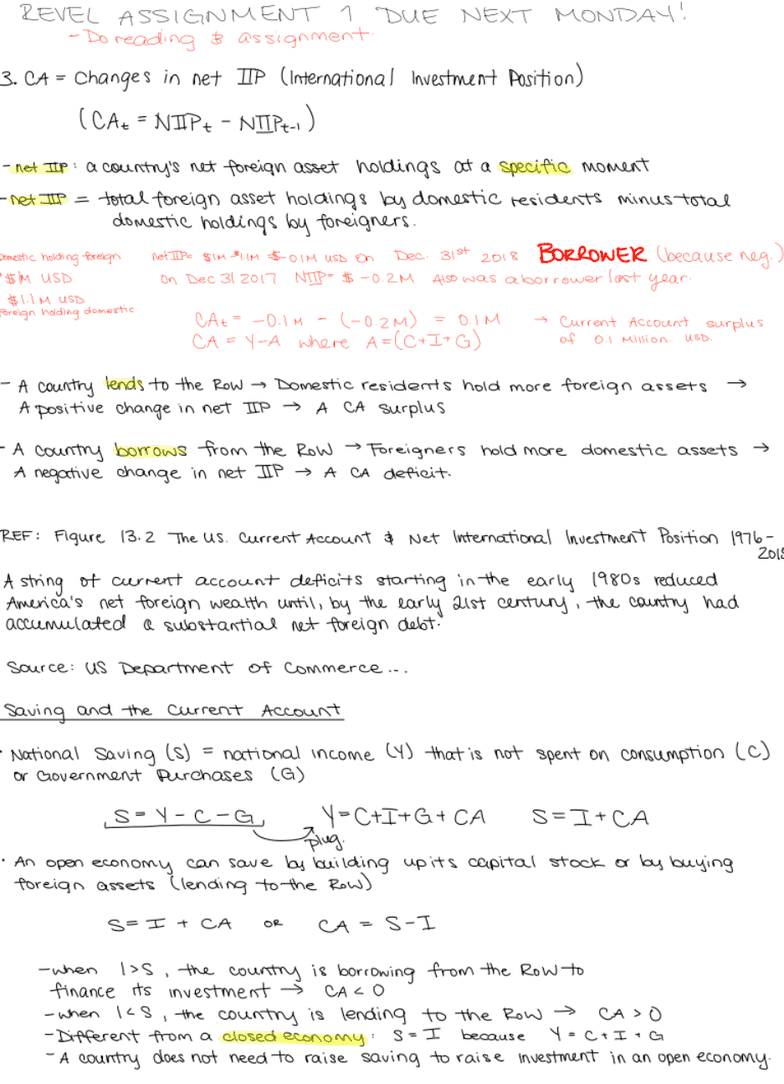 REVEL ASSIGNMENT 1 DUE NEXT MONDAY!
- Do reading & assignment.
3. CA = Changes in net IIP (International Investment Position)
(CAt = NIIPt - NIIPt-1)
- net IIP: a country's net foreign asset holdings at a specific moment
- net IIP = total foreign asset holdings by domestic residents minus total
domestic holdings by foreigners.
Domestic holding foreign net IIP= $1M - $1.1M = $-0.1M USD on Dec. 31st 2018 BORROWER (because neg.)
$1M USD on Dec 31 2017 NIIP= $ -0.2M Also was a borrower last year.
$1.1M USD
Foreign holding domestic
CAt = -0.1M - (-0.2M) = 0.1M → Current Account surplus
CA = Y-A where A=(C+I+G) of 0.1 Million. USD.
- A country lends to the RoW → Domestic residents hold more foreign assets →
A positive change in net IIP → A CA surplus
- A country borrows from the RoW → Foreigners hold more domestic assets →
A negative change in net IIP → A CA deficit.
REF: Figure 13.2 The US. Current Account & Net International Investment Position 1976-
2018
A string of current account deficits starting in the early 1980s reduced
America's net foreign wealth until, by the early 21st century, the country had
accumulated a substantial net foreign debt.
Source: US Department of Commerce...
Saving and the Current Account
· National Saving (S) = national income (Y) that is not spent on consumption (C)
or Government Purchases (G)
S = Y - C - G Y = C+I+G + CA S = I + CA
plug.
· An open economy can save by building up its capital stock or by buying
foreign assets (lending to the RoW)
S = I + CA OR CA = S-I
- when I>S, the country is borrowing from the RoW to
finance its investment → CA < 0
- when I<S, the country is lending to the RoW → CA > 0
- Different from a closed economy: S = I because Y = C + I + G
- A country does not need to raise saving to raise investment in an open economy.